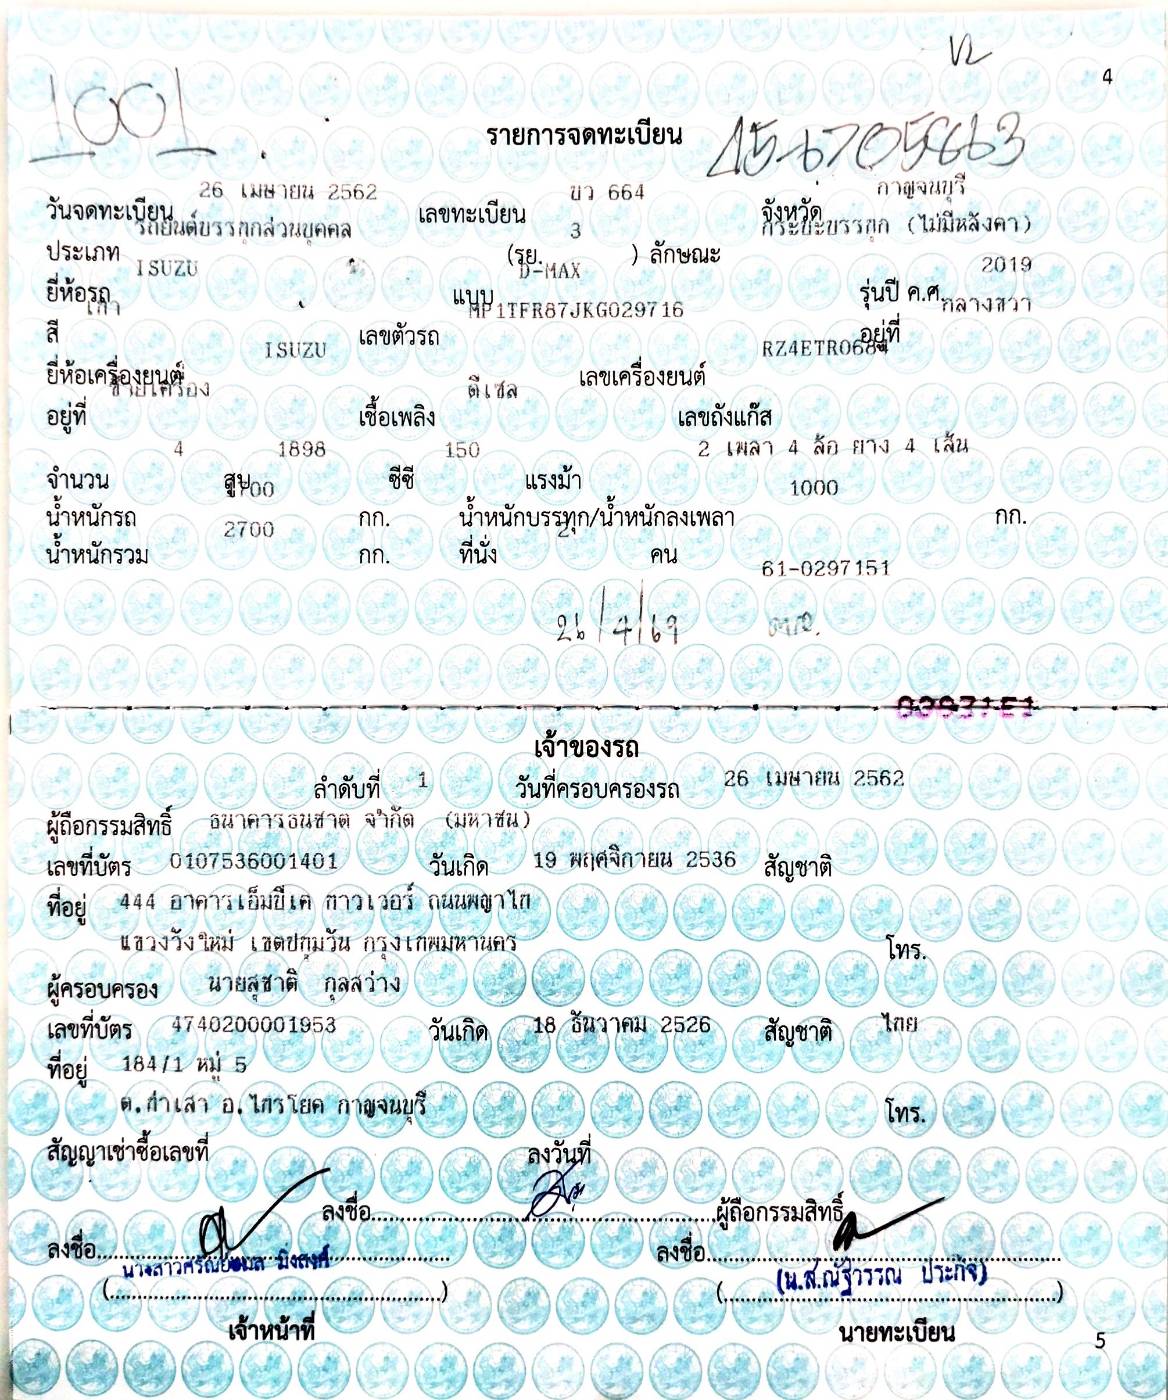 4
1001
รายการจดทะเบียน
วันจดทะเบียน 26 เมษายน 2562 เลขทะเบียน ขว 664 จังหวัด กาญจนบุรี
ประเภท รถยนต์บรรทุกส่วนบุคคล (รย. 3 ) ลักษณะ กระบะบรรทุก (ไม่มีหลังคา)
ยี่ห้อรถ ISUZU แบบ D-MAX รุ่นปี ค.ศ. 2019
สี เทา เลขตัวรถ MP1TFR87JKG029716 อยู่ที่ กลางขวา
ยี่ห้อเครื่องยนต์ ISUZU เลขเครื่องยนต์ RZ4ETR0684
อยู่ที่ ซ้ายเครื่อง เชื้อเพลิง ดีเซล เลขถังแก๊ส
จำนวน 4 สูบ 1898 ซีซี 150 แรงม้า 2 เพลา 4 ล้อ ยาง 4 เส้น
น้ำหนักรถ 1700 กก. น้ำหนักบรรทุก/น้ำหนักลงเพลา 1000 กก.
น้ำหนักรวม 2700 กก. ที่นั่ง 2 คน
61-0297151
26/4/69
0297151
เจ้าของรถ
ลำดับที่ 1 วันที่ครอบครองรถ 26 เมษายน 2562
ผู้ถือกรรมสิทธิ์ ธนาคารธนชาต จำกัด (มหาชน)
เลขที่บัตร 0107536001401 วันเกิด 19 พฤศจิกายน 2536 สัญชาติ
ที่อยู่ 444 อาคารเอ็มบีเค ทาวเวอร์ ถนนพญาไท
แขวงวังใหม่ เขตปทุมวัน กรุงเทพมหานคร โทร.
ผู้ครอบครอง นายสุชาติ กุลสว่าง
เลขที่บัตร 4740200001953 วันเกิด 18 ธันวาคม 2526 สัญชาติ ไทย
ที่อยู่ 184/1 หมู่ 5
ต.ท่าเสา อ.ไทรโยค กาญจนบุรี โทร.
สัญญาเช่าซื้อเลขที่ ลงวันที่
ลงชื่อ ผู้ถือกรรมสิทธิ์
ลงชื่อ ลงชื่อ
(น.ส.ณัฐวรรณ ประกิจ)
เจ้าหน้าที่ นายทะเบียน
5